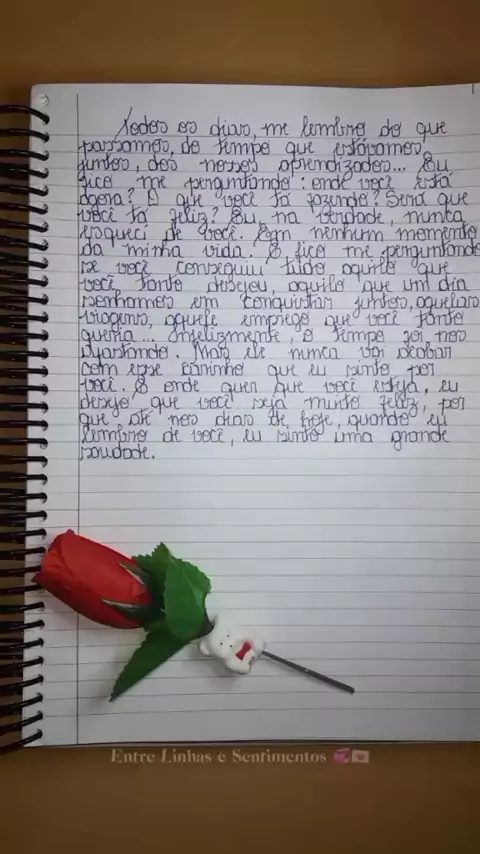 Todos os dias, me lembro do que
passamos, do tempo que estávamos
juntos, dos nossos aprendizados... Eu
fico me perguntando: onde você está
agora? O que você tá fazendo? Será que
você tá feliz? Eu, na verdade, nunca
esqueci de você. Em nenhum momento
da minha vida. E fico me perguntando
se você conseguiu tudo aquilo que
você tanto desejou, aquilo que um dia
sonhamos em conquistar juntos, aquelas
viagens, aquele emprego que você tanto
queria... Infelizmente, o tempo foi nos
afastando. Mas ele nunca vai acabar
com esse carinho que eu sinto por
você. E onde quer que você esteja, eu
desejo que você seja muito feliz, por
que até nos dias de hoje, quando eu
lembro de você, eu sinto uma grande
saudade.
Entre Linhas e Sentimentos 💞💌